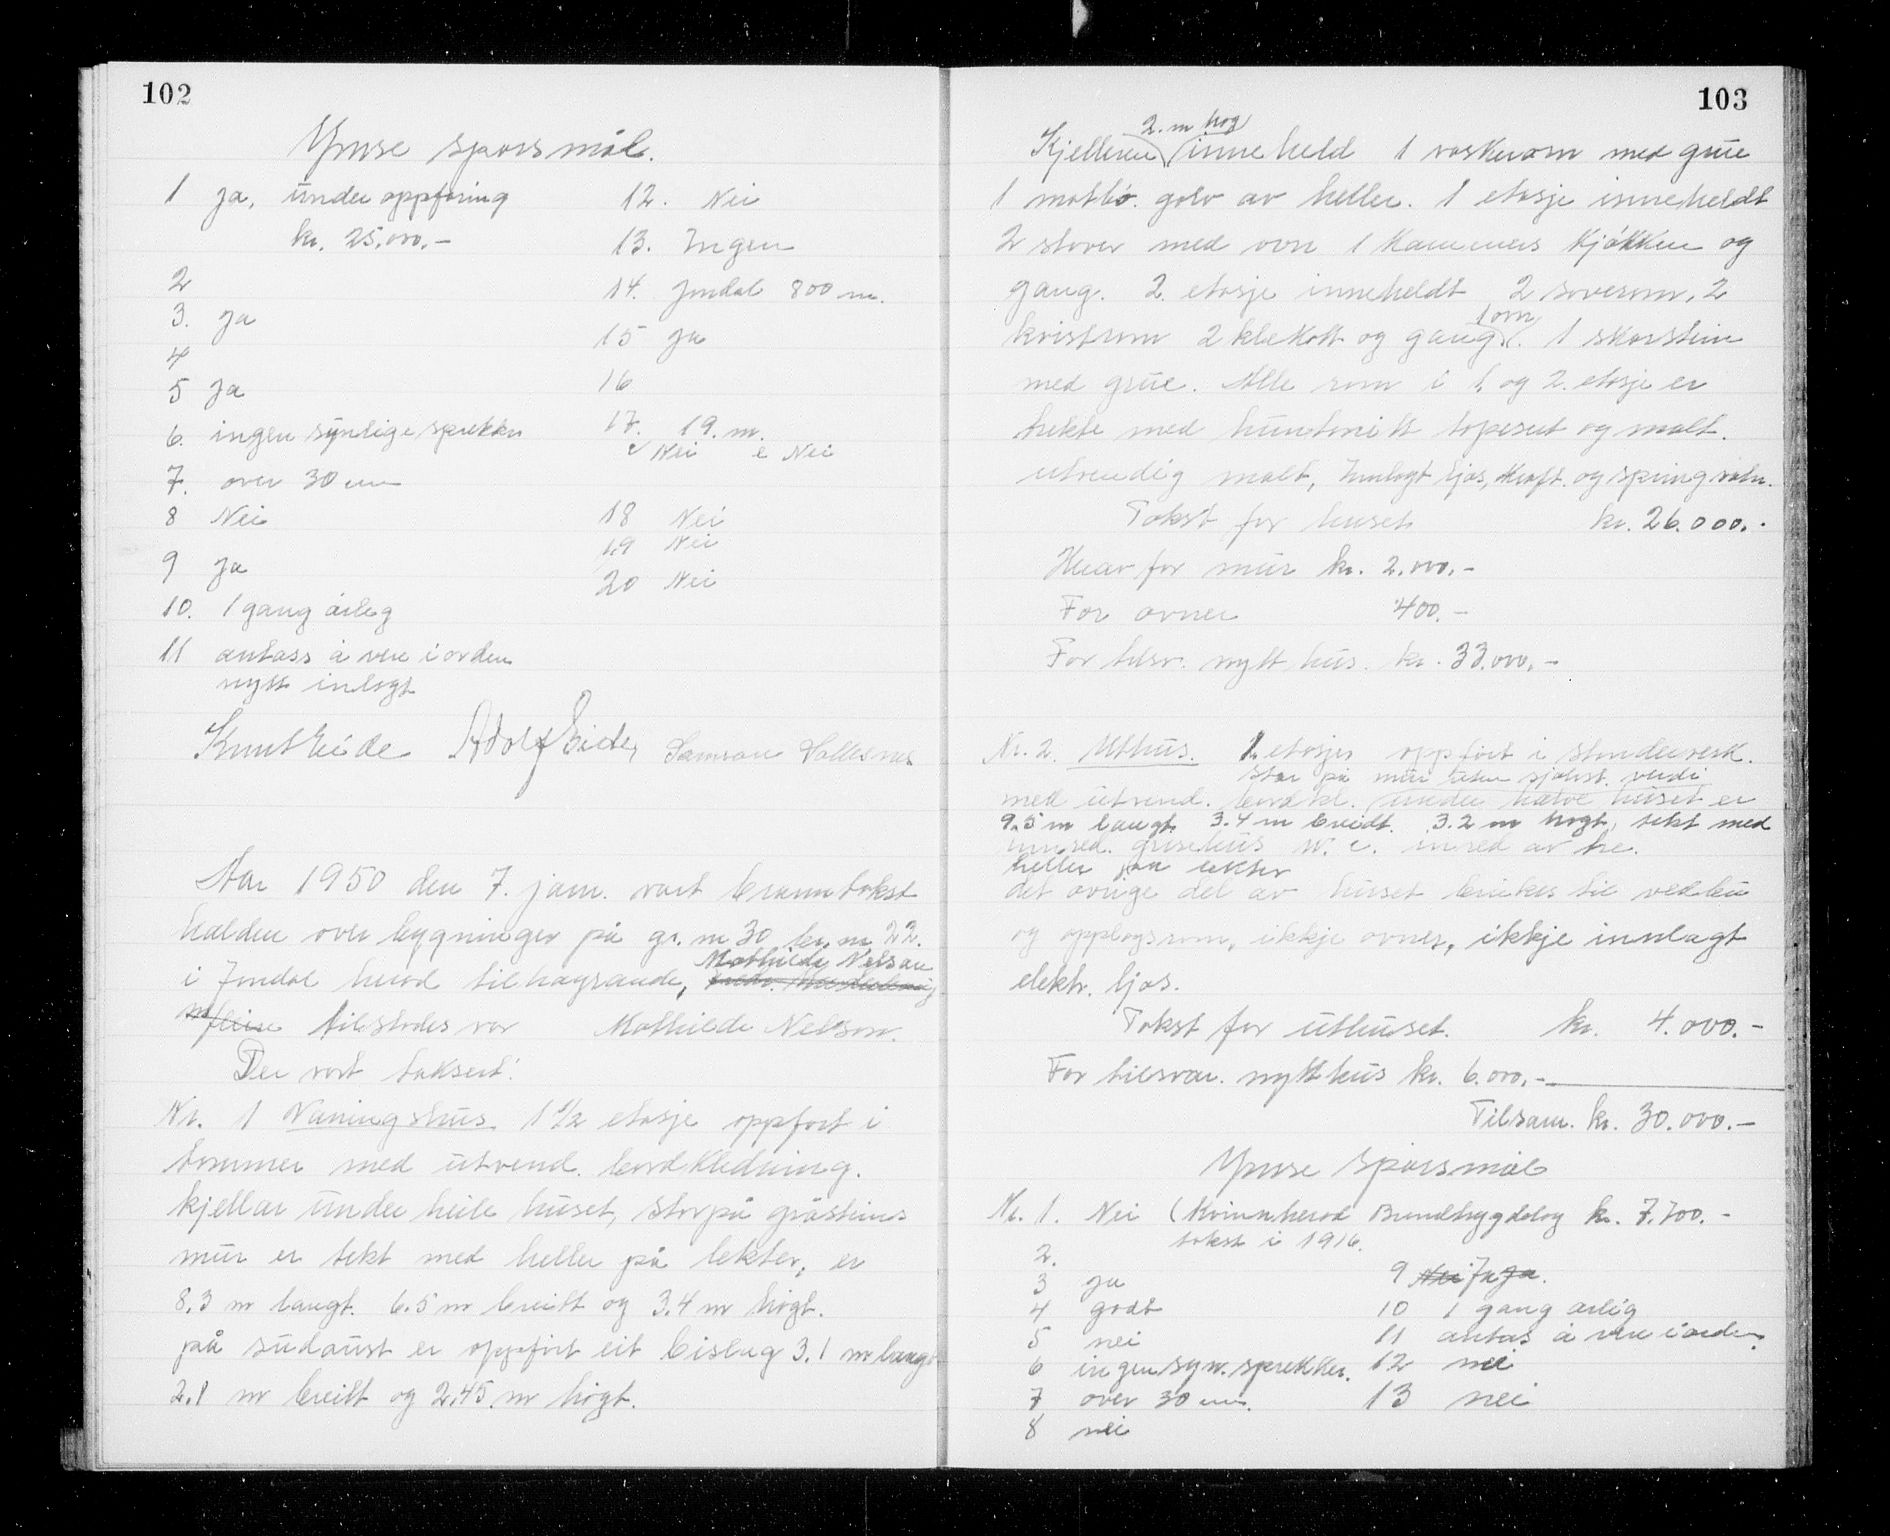 102
Ymse spørsmål.
1 Ja, under oppføring
kr. 25.000.-
2
3. Ja
4
5 Ja
6. ingen synlige sprekker
7. over 30 cm
8 Nei
9 Ja
10. 1 gang årleg
11 antass å vere i orden
nytt inlagt
12. Nei
13. Ingen
14. Jondal 800 m.
15 Ja
16
17. 19. m.
Nei e Nei
18 Nei
19 Nei
20 Nei
Knut Eide Adolf Eide, Samson
Aar 1950 den 7. jan. vart branntakst
halden over bygninger på gr. nr 30 br. nr 22.
Mathilde Nelson
i Jondal herad tilhøyrande,
tilstades var Mathilde Nelson.
Der vart taksert:
Nr. 1 Våningshus 1 1/2 etasje oppført i
tømmer med utvend. bordkledning.
kjellar under heile huset, står på gråsteins
mur er tekt med heller på lekter, er
8.3 m langt. 6.5 m breitt og 3.4 m høgt.
på sudaust er oppført eit bislag 3.1 m langt
2.1 m breitt og 2.45 m høgt.
103
2. m høg
Kjelleren inneheld 1 vaskerom med grue
1 matbo. golv av heller. 1 etasje inneheldt
2 stover med ovn 1 kammers kjøkken og
gang. 2. etasje inneheldt 2 soverom, 2
1 ovn
kvistrom 2 klekott og gang. 1 skorstein
med grue. Alle rom i 1. og 2. etasje er
trekte med huntonitt tapesert og malt.
utvendig malt, Innlagt ljos, kraft. og springvatn.
Takst for huset kr. 26.000.-
Herav for mur kr. 2.000.-
For ovner 400.-
For tilsv. nytt hus. kr. 33.000.-
Nr. 2. Uthus. 1. etasjes oppført i stenderverk.
står på mur uten sjølvst. verdi
med utvend. bordkl. under halve huset er
9.5 m langt. 3.4 m breidt. 3.2 m høgt, tekt med
innred. grisehus w. c. innred av tre.
heller paa lekter
det øvrige del av huset brukes til vedbu
og opplagsrom, ikkje ovner, ikkje innlagt
elektr. ljos.
Takst for uthuset. kr. 4.000.-
For tilsvar. nytt hus kr. 6.000.-
Tilsam. kr. 30.000.-
Ymse spørsmål
Nr. 1. Nei (Kvinnherad Brandtrygdelag kr. 7.700.-
takst i 1916.
2.
3 ja
4 godt
5 nei
6 ingen syn. sprekker.
7 over 30 cm.
8 nei
9 Nei Ja Ja.
10 1 gang årlig
11 antas å vere i orden.
12 nei
13 nei